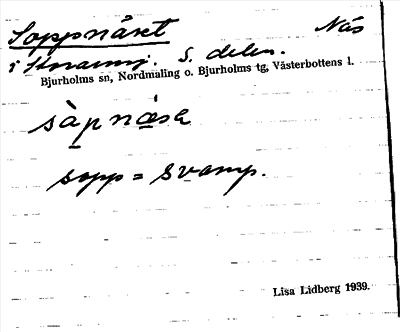 Soppnäset Näs
i Storarmsj. S. delen.
Bjurholms sn, Nordmaling o. Bjurholms tg, Västerbottens l.
såpnäsa
sopp = svamp.
Lisa Lidberg 1939.